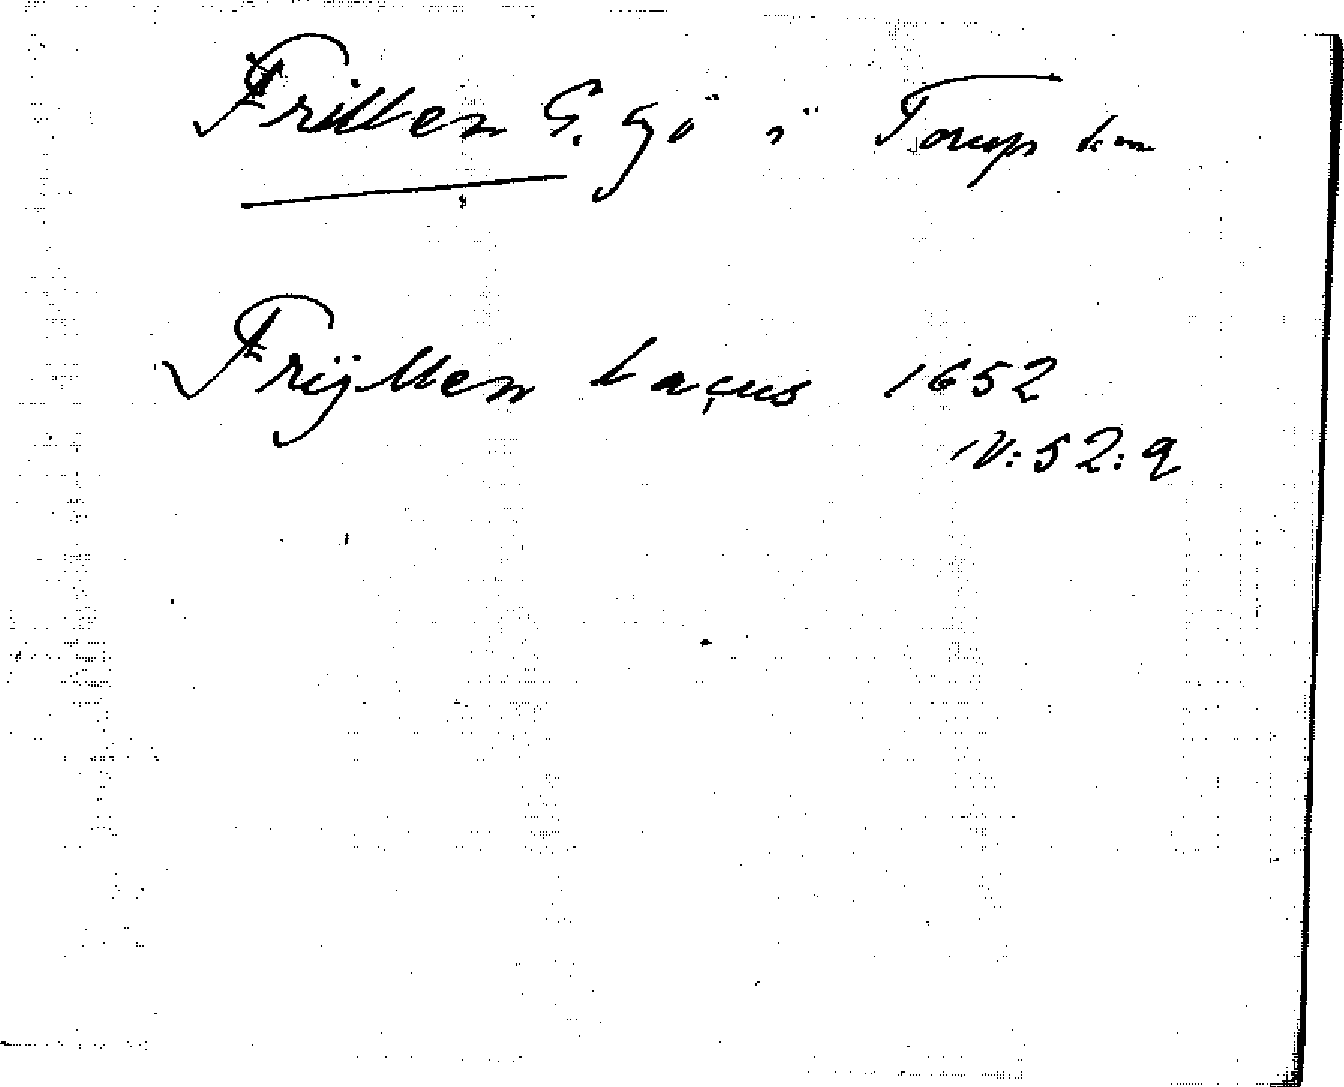 Frillen S. sjö i Torup sn
Frijllen Lacus 1652
IV:52:9